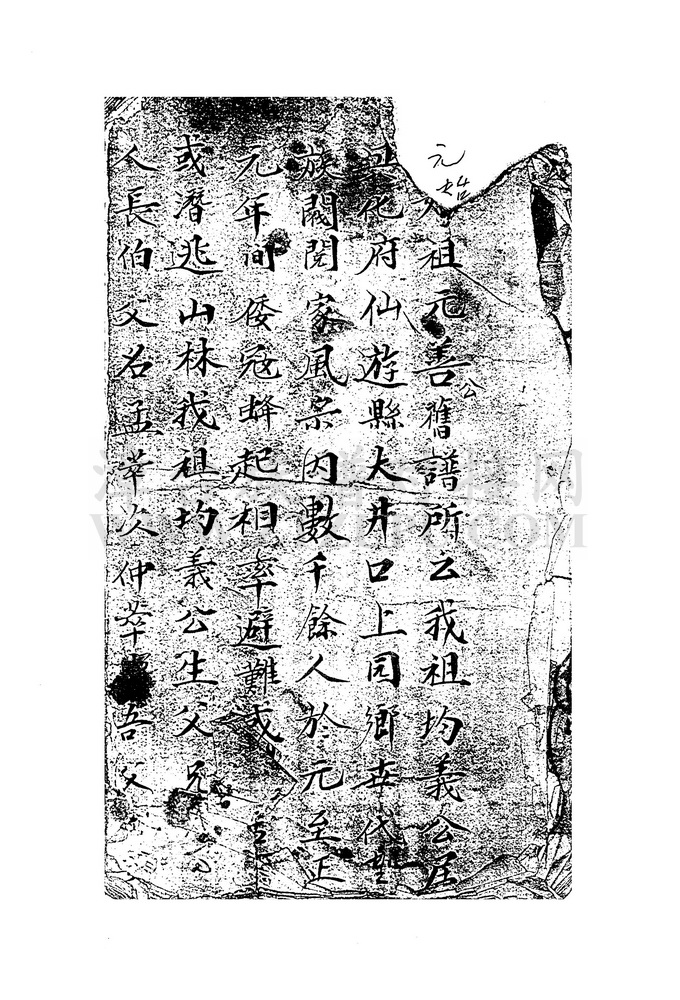 元始
祖元善公舊譜所云我祖均義公居
化府仙遊縣大井口上园鄉世代望
族閥閱家風宗内數千餘人於元至正
元年间倭寇蜂起相率避難或
或潛逃山林我祖均義公生父兄
人長伯父名孟華次仲華吾父